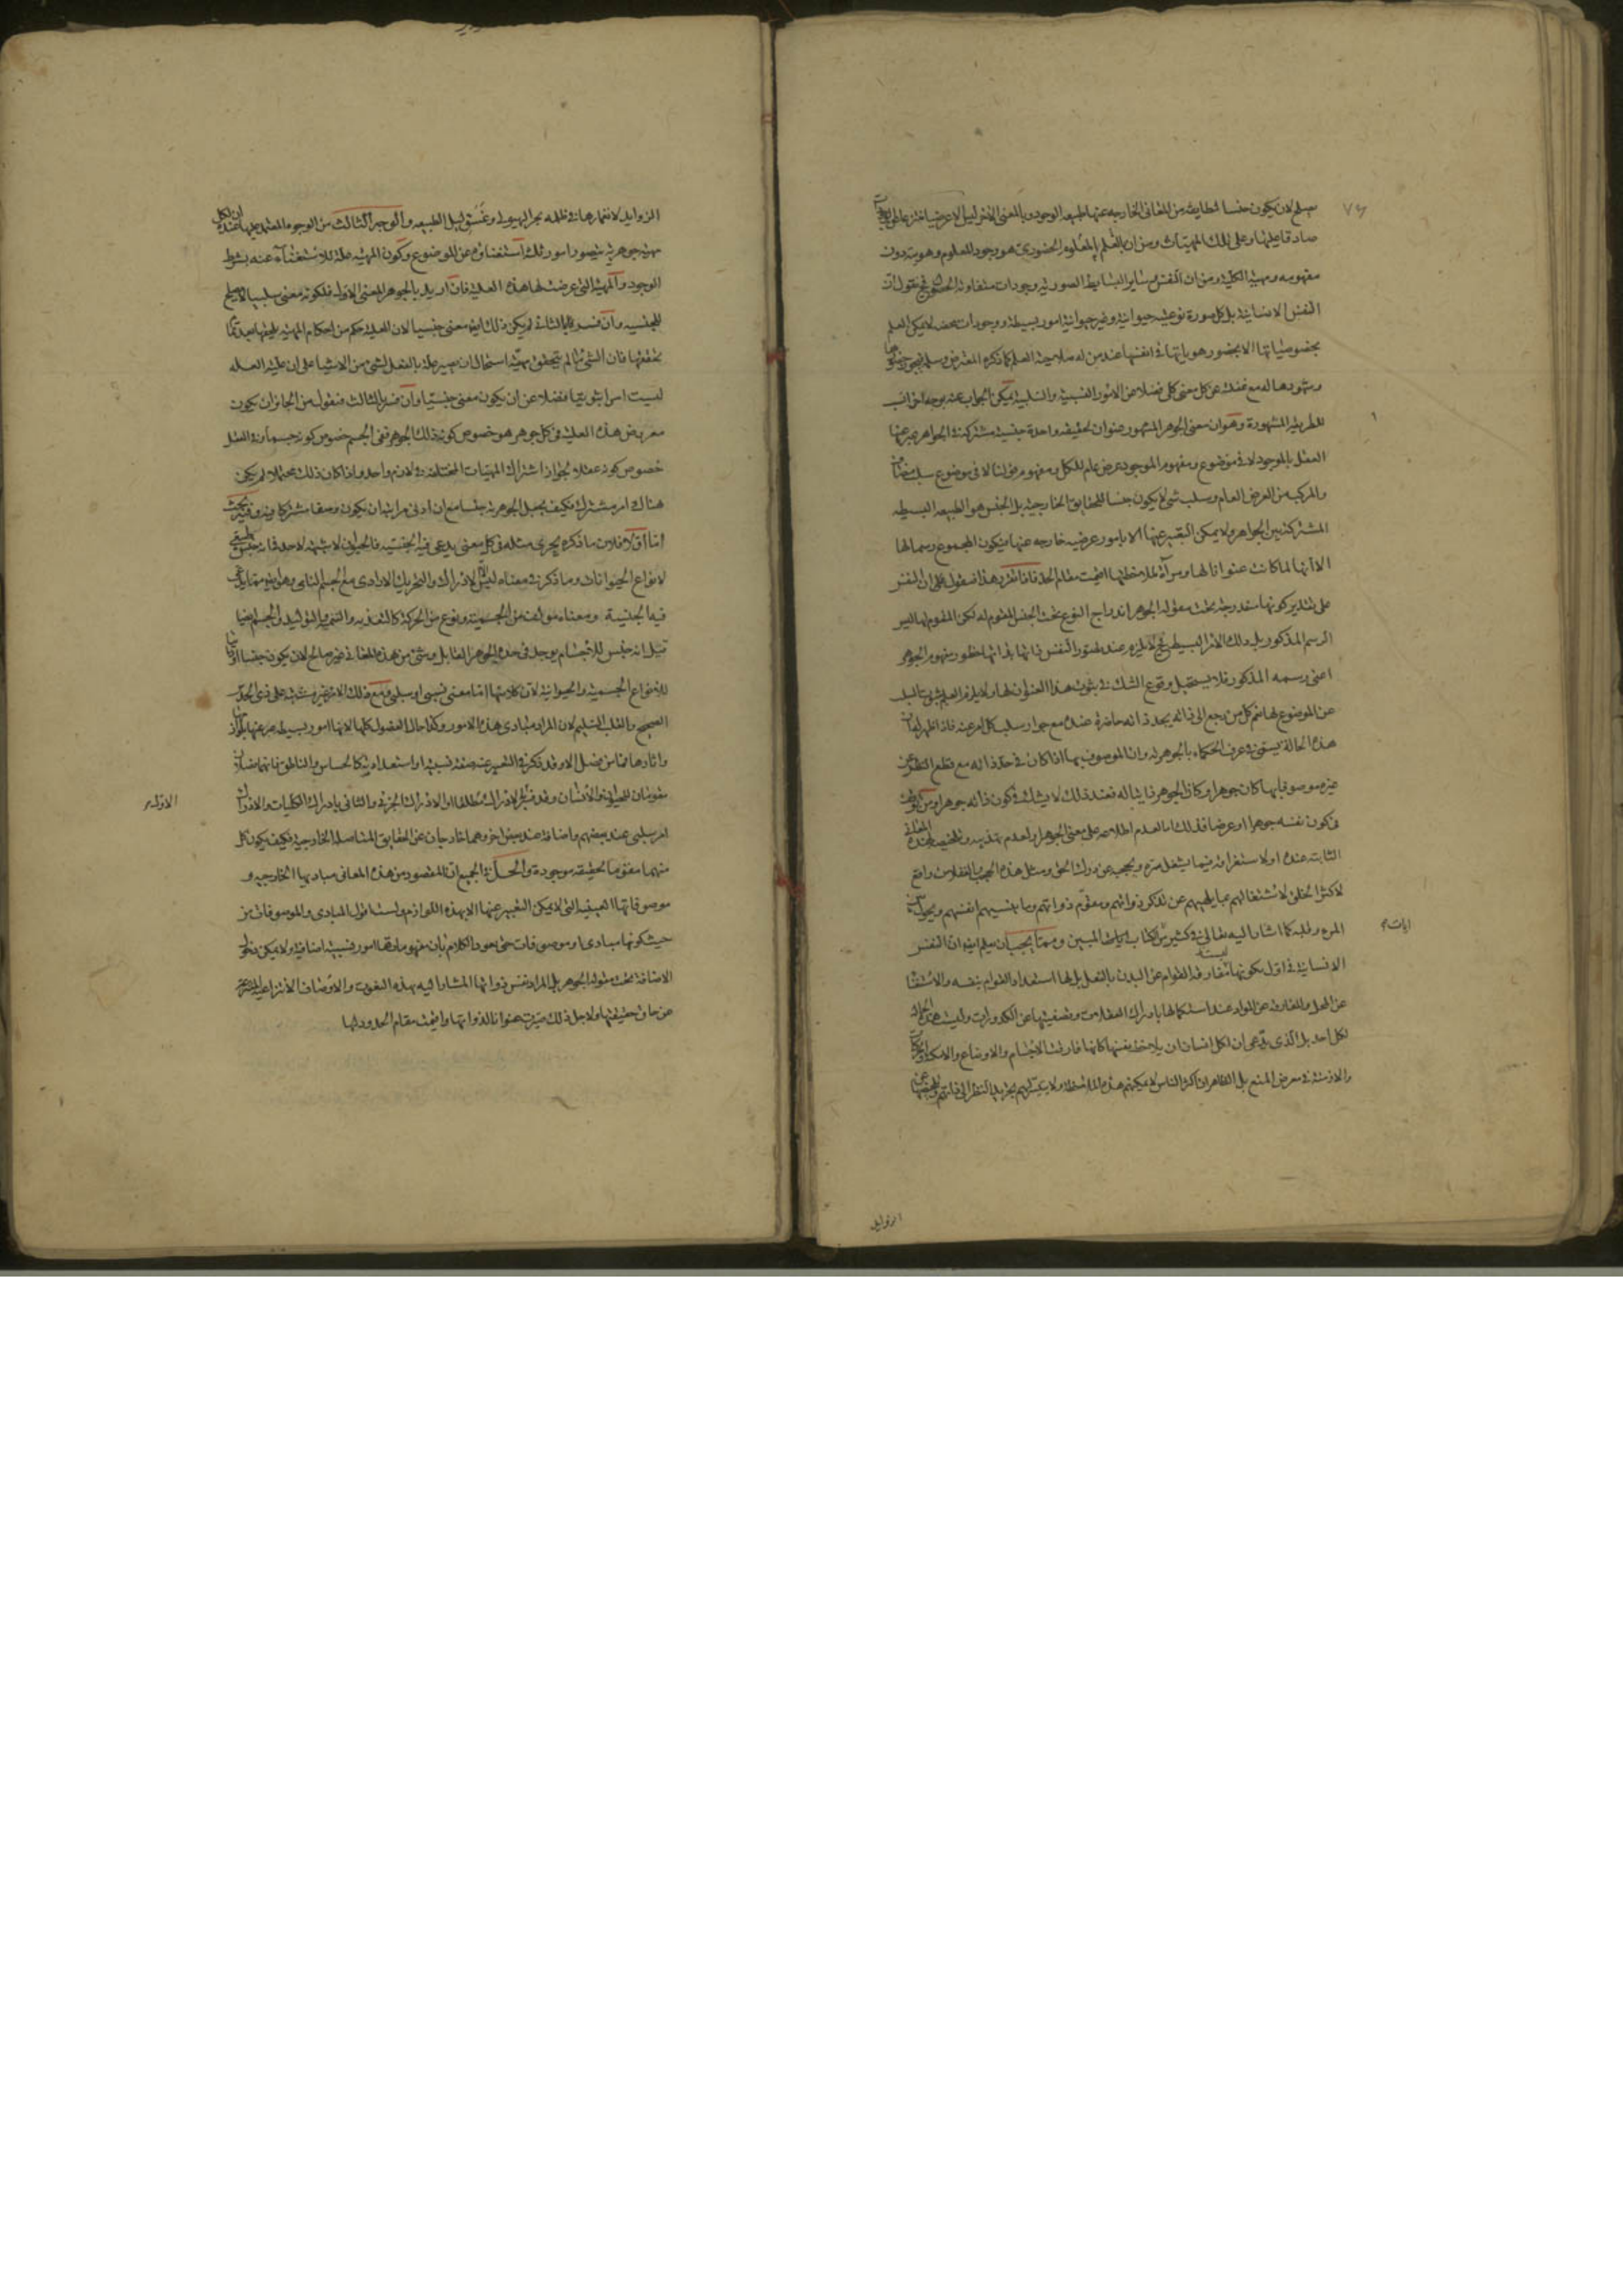 ٧٤
يصلح لان يكون جنسا لطايفة من المعاني الخارجة عنها طبيعة الوجود وبالمعنى الاخر ليس الا عرضيا
صادقا عليها وعلى تلك المهيات ومن ان العلم بالمعلوم الحضوري هو وجود المعلوم وهويته دون
مفهومه ومهيته الكلية ومن ان النفس وساير البسايط الصورية وجودات متفاوتة الحصول فح نقول ان
النفس الانسانية بل كل صورة نوعية حيوانية وغير حيوانية امور بسيطة ووجودات محضة لا يمكن العلم
بخصوصياتها الا بحضور هوياتها في انفسها عند من له صلاحية العلم كما ذكره المعترض وسلم
وشهودها له مع غفلته عن كل معنى كلي فضلا عن الامور النسبية والسلبية يمكن الجواب عنه بوجه اخر انسب
للطريقة المشهورة وهو ان معنى الجوهر المشهور عنوان لحقيقة واحدة جنسية مشتركة في الجواهر يعبر عنها
العقل بالموجود لا في موضوع ومفهوم الموجود عرض عام للكل ومفهوم قولنا لا في موضوع سلب
والمركب من العرض العام وسلب شي لا يكون جنسا للحقايق الخارجية بل الجنس هو الطبيعة البسيطة
المشتركة بين الجواهر ولا يمكن التعبير عنها الا بامور عرضية خارجة عنها فيكون المجموع رسما لها
الا انها لما كانت عنوانا لها ومرآة لملاحظتها اقيمت مقام الحد فاذا تقرر هذا فنقول على ان النفس
على تقدير كونها مندرجة تحت مقولة الجوهر اندراج النوع تحت الجنس المقوم له لكن المقوم لها ليس
الرسم المذكور بل ذلك الامر البسيط فح لا يلزم عند تصور النفس ذاتها بذاتها خطور مفهوم الجوهر
اعني رسمه المذكور فلا يستحيل وقوع الشك في ثبوت هذا العنوان لها ولا يلزم العلم بثبوت السلب
عن الموضوع لها نعم كل من رجع الى ذاته يجد ذاته حاضرة عنده مع جواز سلب كل امر عنه فاذا ظهر له ان
هذه الحالة يسمى في عرف الحكماء بالجوهرية وان الموصوف بها اذا كان في حد ذاته مع قطع النظر عن
غيره موصوفا بها كان جوهرا وكان الجوهر ذاتيا له فعند ذلك لا يشك في كون ذاته جوهرا ومن توقف
في كون نفسه جوهرا او عرضا فذلك اما لعدم اطلاعه على معنى الجوهر او لعدم تهذيبه وتلخيصه
الثابت عنده او لاستغراقه فيما يشغل سره ويحجبه عن درك الحق ومثل هذه الحجب والغفلات واقع
لاكثر الخلق لاشتغالهم بما يلهيهم عن تذكر ذواتهم ومقوم ذواتهم وما ينسيهم انفسهم ويحول بين
المرء وقلبه كما اشار اليه تعالى في كثير من الكتاب المبين ومما يجب ان يعلم ايضا ان النفس
ايات
الانسانية في اول تكونها ليست مفارقة القوام عن البدن بالفعل بل لها استعداد القوام بنفسه والاستغناء
عن المحل والمفارقة عن المواد عند استكمالها بادراك العقليات وتصفيتها عن الكدورات وليست هذه الحالة
لكل احد بل الذي يدعى ان لكل انسان ان يلاحظ نفسها كانها فارقت الاجسام والاوضاع والامكنة
والازمنة في معرض المنع بل الظاهر ان اكثر الناس لا يمكنهم هذه الملاحظة ولا يتيسر لهم تجريد النظر الى ذاتهم
الزوايد
الزوايد لانغمارها في ظلمة بحر الهيولى وغسق ليل الطبيعة والوجه الثالث من الوجوه المعتمد عليها عنده ان لكل
مهية جوهرية يتصور امور ثلثة استغناؤه عن الموضوع وكون المهية علة للاستغناء عنه بشرط
الوجود والمهية التي عرضت لها هذه العلية فان اريد بالجوهر المعنى الاول فلكونه معنى سلبيا لا يصلح
للجنسية وان فسر بالثاني لم يكن ذلك ايضا معنى جنسيا لان العلية حكم من احكام المهية يلحقها بعد تمام
تحققها فان الشي ما لم يتحقق مهيته استحال ان يصير علة بالفعل لشي من الاشيا على ان علية العلة
ليست امرا ثبوتيا فضلا عن ان يكون معنى جنسيا وان فسر بالثالث فنقول من الجائز ان يكون
معروض هذه العلية في كل جوهر هو خصوص كونه ذلك الجوهر ففي الجسم خصوص كونه جسما وفي العقل
خصوص كونه عقلا لجواز اشتراك المهيات المختلفة في لازم واحد واذا كان ذلك محتملا لم يكن
هناك امر مشترك فكيف يجعل الجوهرية جنسا مع ان ادنى مراتبه ان يكون وصفا مشتركا وفيه بحث
اما اولا فلان ما ذكره يجري مثله في كل معنى يدعى فيه الجنسية فالحيوان لا شبهة لاحد في انه جنس طبيعي
لانواع الحيوانات وما ذكر في معناه ليس الا الادراك والتحريك الارادي مع الجسم النامي وهو ايضا مما يدعى
فيه الجنسية ومعناه مؤلف من الجسمية ونوع من الحركة كالتغذية والتنمية والتوليد والجسم ايضا
قيل انه جنس للاجسام يوجد في حده الجوهر القابل وشي من هذه المعاني غير صالح لان يكون جنسا
للانواع الجسمية والحيوانية لان كلا منها اما معنى نسبي او سلبي ومع ذلك الامر غير مشتبه على ذي الحدس
الصحيح والقلب السليم لان المراد مبادي هذه الامور وكذا حال الفصول كلها لانها امور بسيطة يعبر عنها
واثارها فما من فصل الا وقد ذكر في التعبير عنه صفة نسبية او استعدادية كالحساس والناطق فانهما فصلان
مقومان للحيوان والانسان وقد فسر الاول بالادراك مطلقا او الادراك الجزئي والثاني بادراك الكليات والادراك
الاول
امر سلبي عند بعضهم واضافة عند بعض اخر وهما خارجان عن الحقايق المتاصلة الخارجية فكيف يكون كل
منهما مقوما لحقيقة موجودة والحل في الجميع ان المقصود من هذه المعاني مباديها الخارجية و
موصوفاتها العينية التي لا يمكن التعبير عنها الا بهذه اللوازم ولست اقول المبادي والموصوفات من
حيث كونها مبادي او موصوفات حتى يعود الكلام بان مفهوماتها امور نسبية اضافية ولا يمكن دخول
الاضافة تحت مقولة الجوهر بل المراد نفس ذواتها المشار اليه بهذه النعوت والاوصاف الانتزاعية
عن حاق حقيقتها ولاجل ذلك صيرت عنوانا لذواتها واقيمت مقام الحدود لها